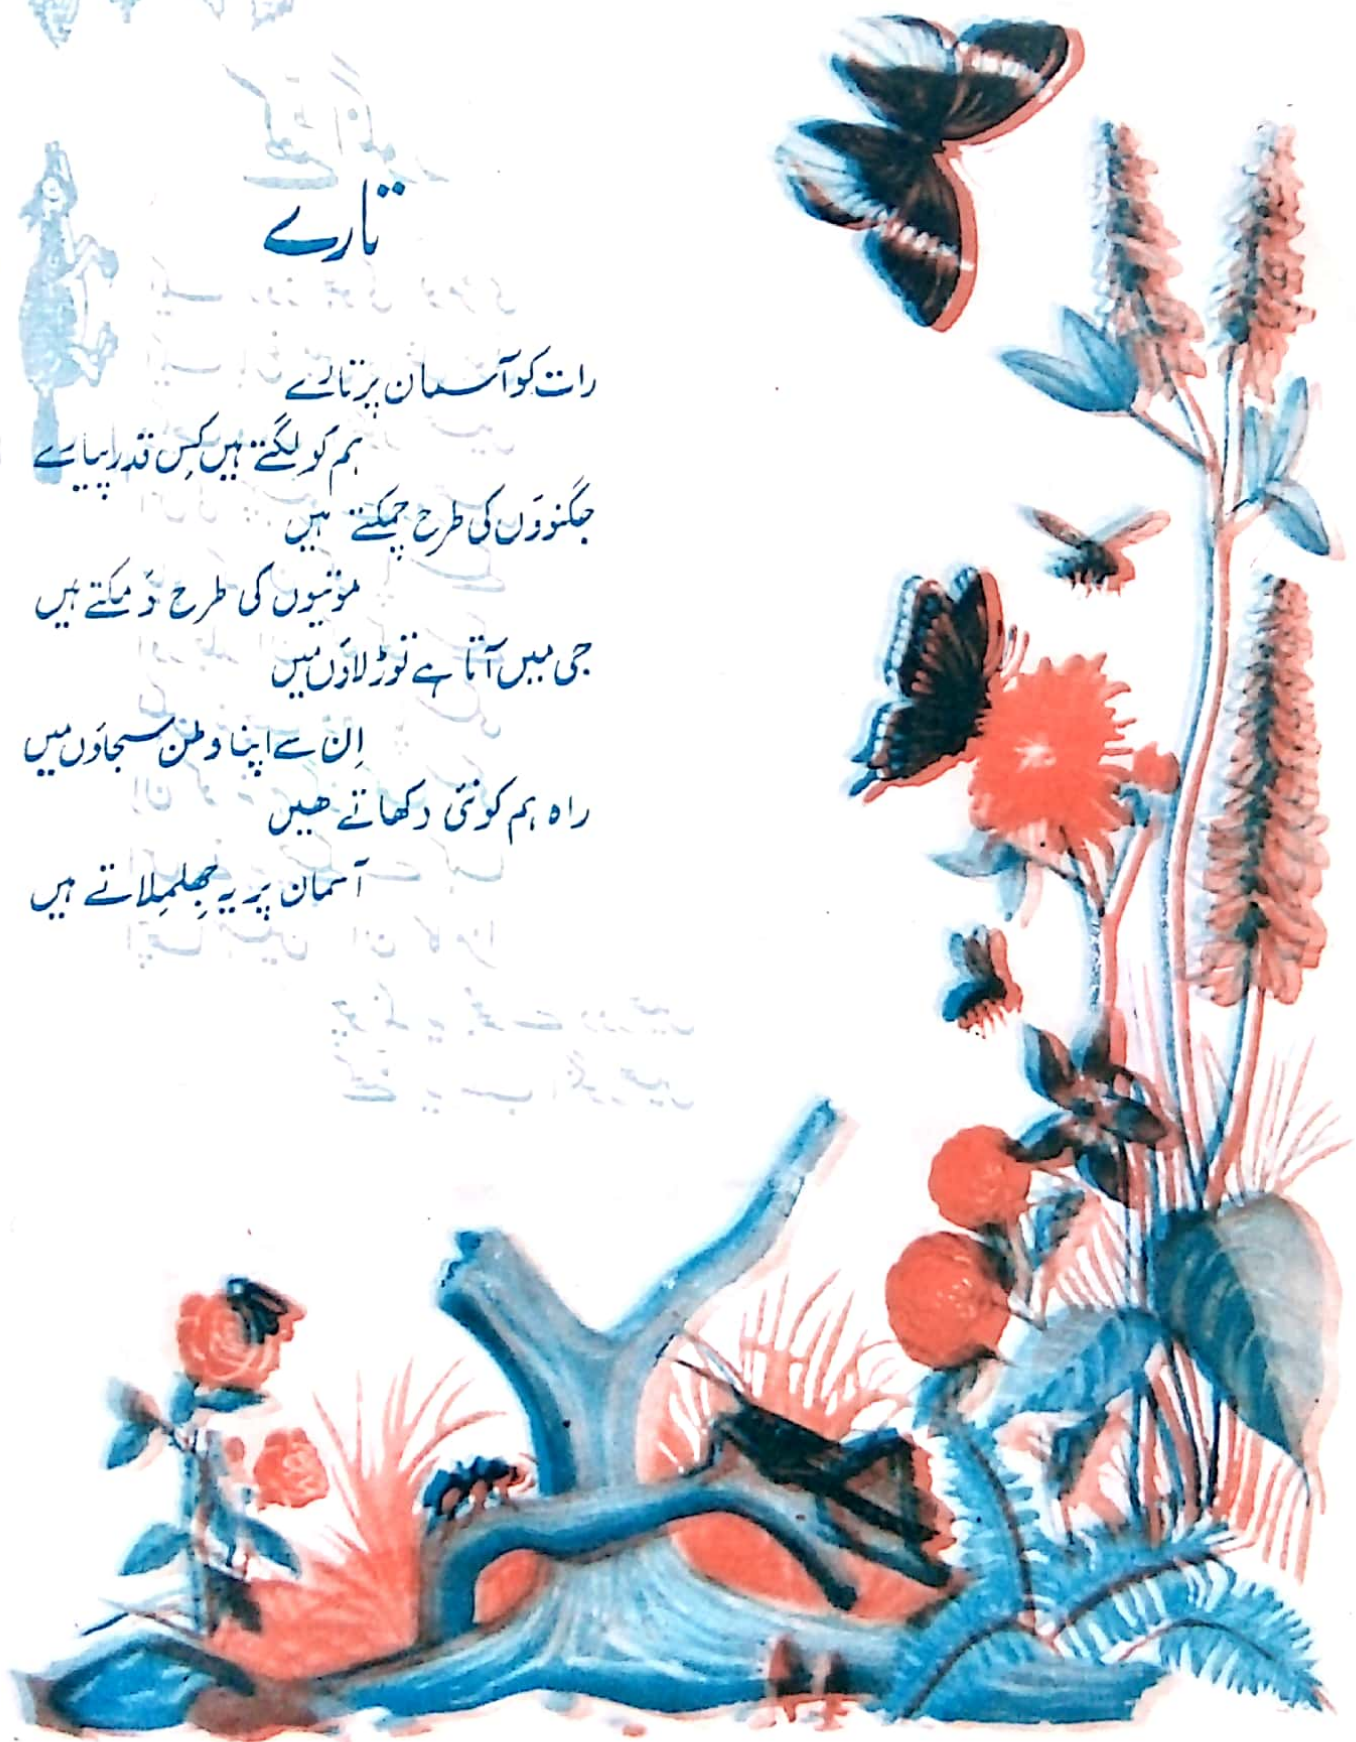 تارے
رات کو آسمان پر تارے
ہم کو لگتے ہیں کِس قدر پیارے
جگنوؤں کی طرح چمکتے ہیں
موتیوں کی طرح دَمکتے ہیں
جی میں آتا ہے توڑ لاؤں میں
اِن سے اپنا وطن سجاؤں میں
راہ ہم کو نئی دکھاتے ھیں
آسمان پر یہ جِھلمِلاتے ہیں